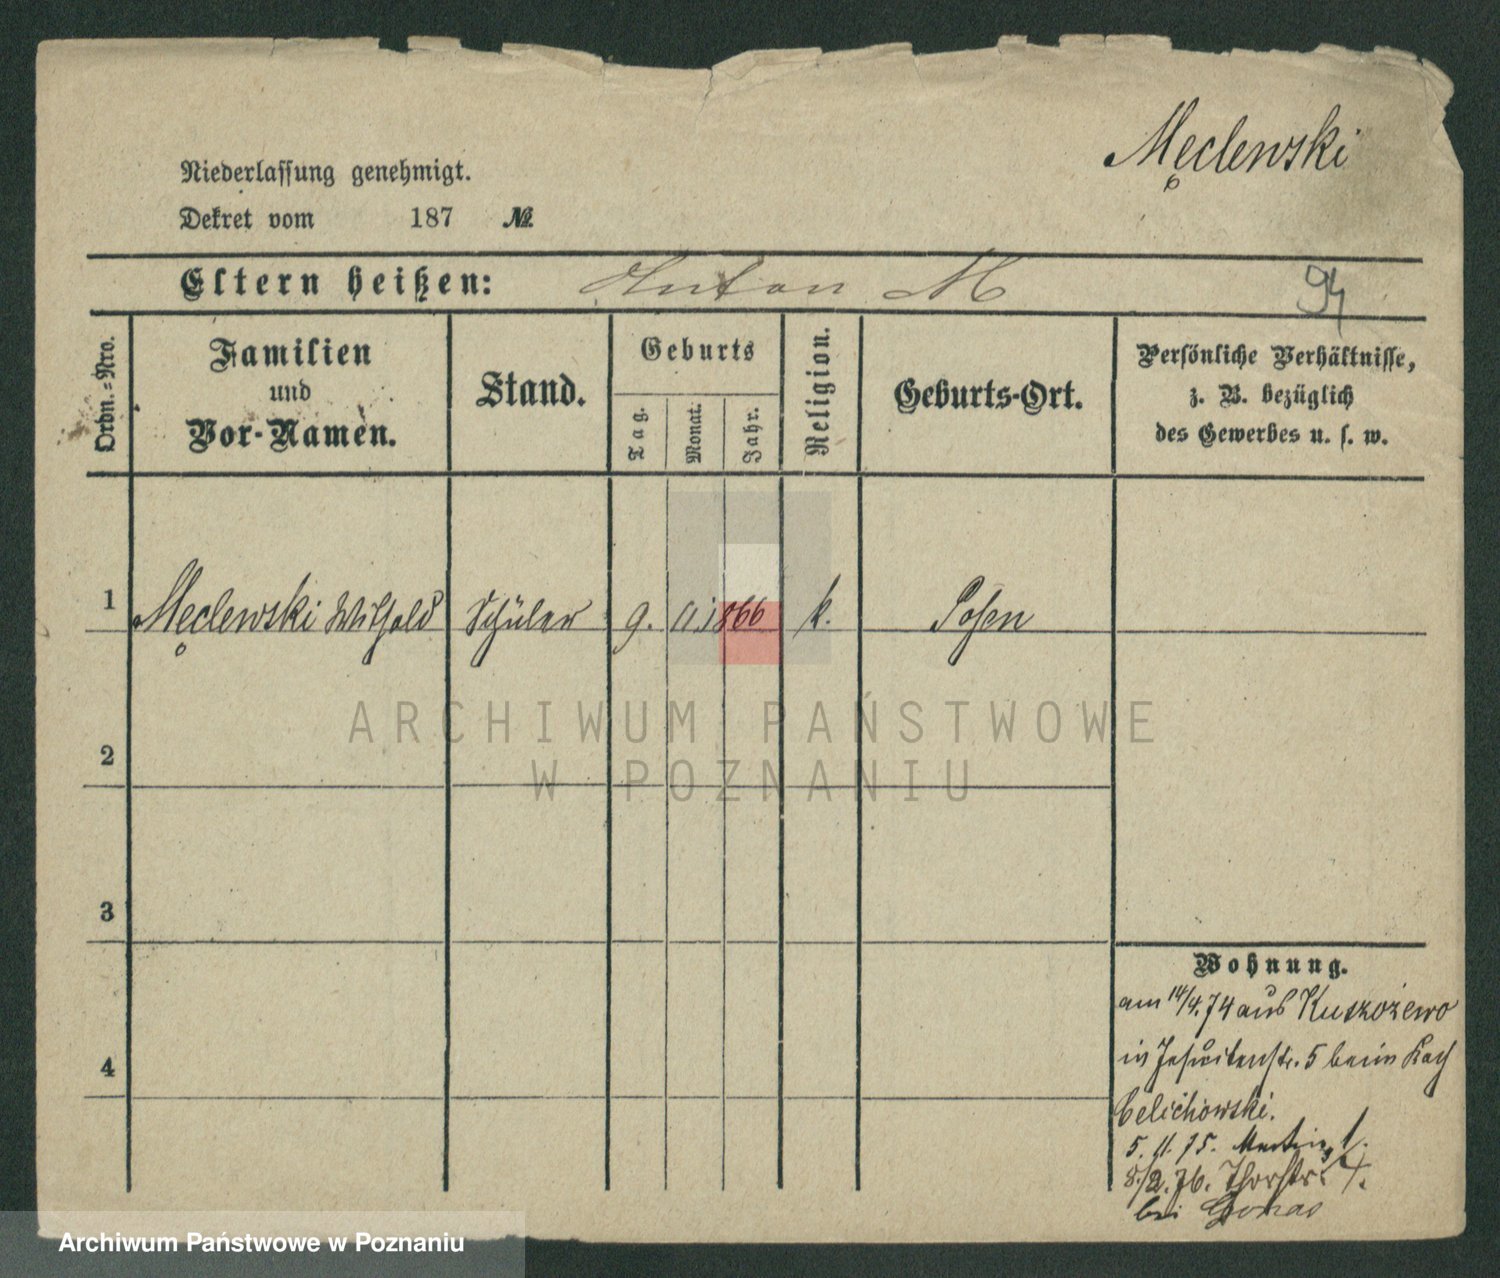 Męclewski
Niederlassung genehmigt.
Dekret vom 187 №
Eltern heißen: Anton M
94
Ordn.=Nro.
Familien
und
Vor-Namen.
Stand.
Geburts
Tag.
Monat.
Jahr.
Religion.
Geburts-Ort.
Persönliche Verhältnisse,
z. B. bezüglich
des Gewerbes u. s. w.
1 Męclewski Withold Schüler 9. 11. 1866 k. Posen
ARCHIWUM PAŃSTWOWE
W POZNANIU
2
3
4
Wohnung.
am 14/4.74 aus
in Jesuitenstr. 5 beim
Celichowski.
5. 11. 75.
8/2.76. Thorstr. 4.
bei
Archiwum Państwowe w Poznaniu